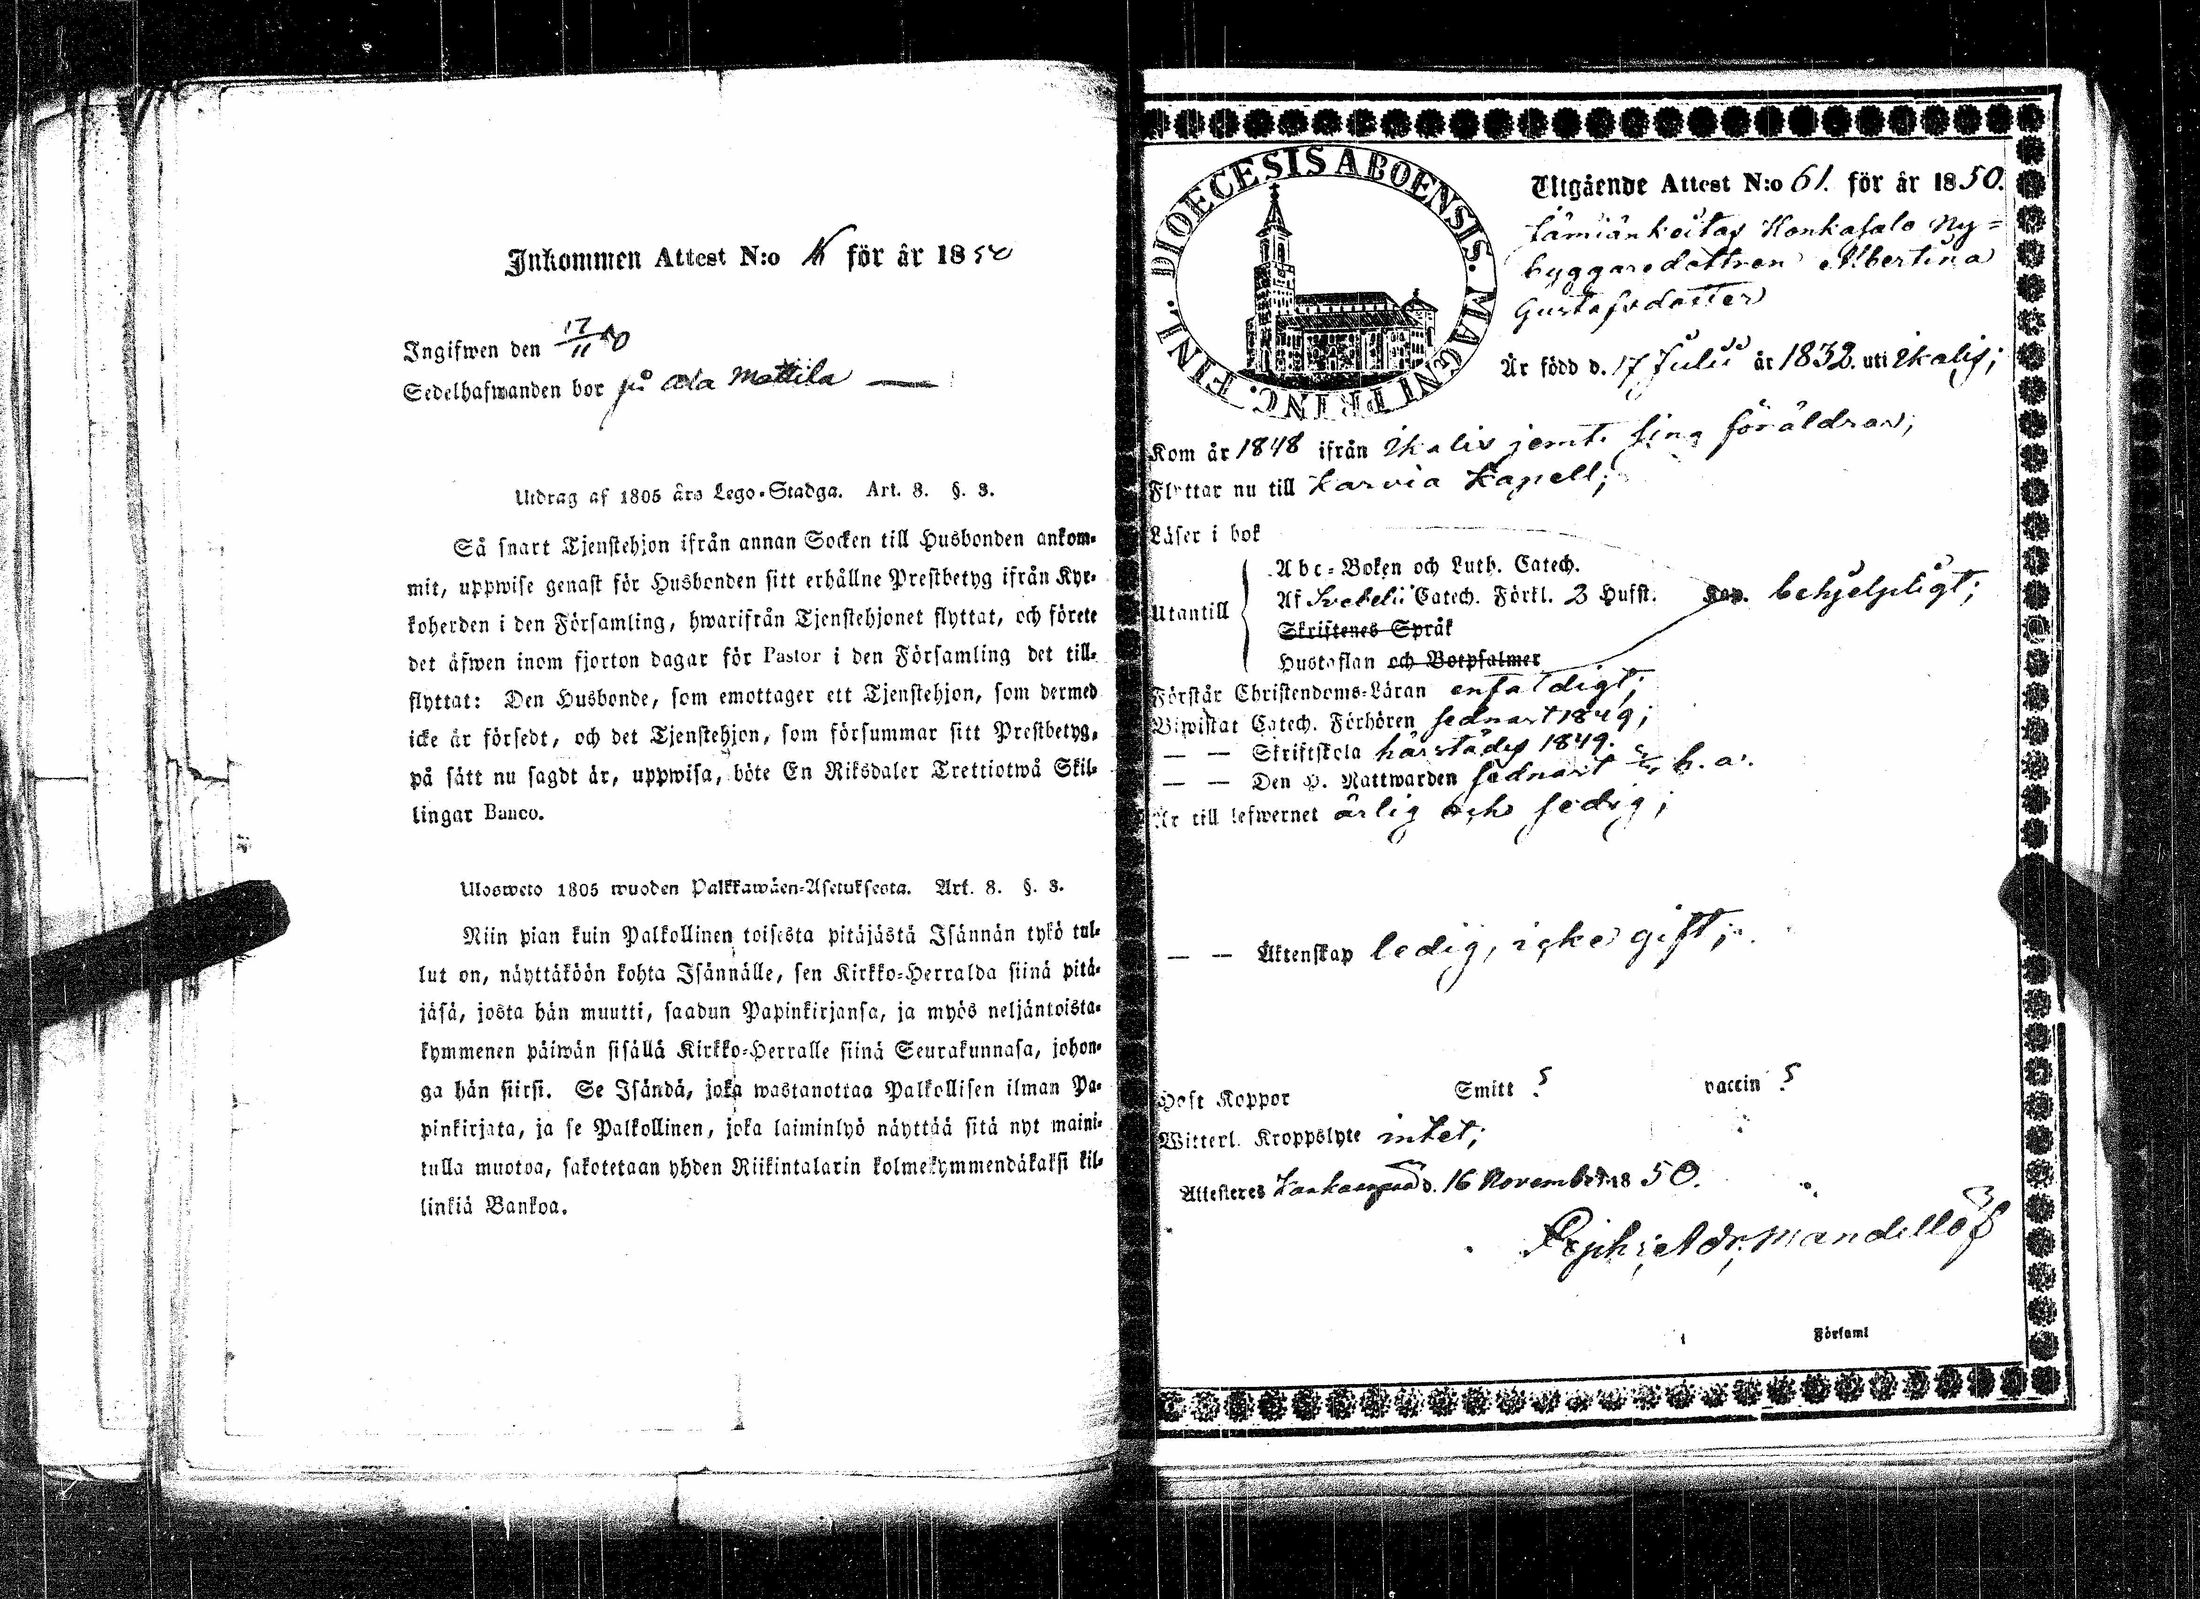 Inkommen Attest N:o för år 1850
Ingifwen den 17/11 50
Sedelhafwanden bor på Ala Mattila
Utdrag af 1805 års Lego-Stadga. Art. 8. §. 3.
Så snart Tjenstehjon ifrån annan Socken till Husbonden ankom-
mit, uppwise genast för Husbonden sitt erhållne Prestbetyg ifrån Kyr-
koherden i den Församling, hwarifrån Tjenstehjonet flyttat, och förete
det äfwen inom fjorton dagar för Pastor i den Församling det till-
flyttat: Den Husbonde, som emottager ett Tjenstehjon, som dermed
icke är försedt, och det Tjenstehjon, som försummar sitt Prestbetyg,
på sätt nu sagdt är, uppwisa, böte En Riksdaler Trettiotwå Skil-
lingar Banco.
Ulosweto 1805 wuoden Palkkawäen-Asetuksesta. Art. 8. §. 3.
Niin pian kuin Palkollinen toisesta pitäjästä Isännän tykö tul-
lut on, näyttäköön kohta Isännälle, sen Kirkko-Herralda siinä pitä-
jäsä, josta hän muutti, saadun Papinkirjansa, ja myös neljäntoista-
kymmenen päiwän sisällä Kirkko-Herralle siinä Seurakunnasa, johon-
ga hän siirsi. Se Isändä, joka wastanottaa Palkollisen ilman Pa-
pinkirjata, ja se Palkollinen, joka laiminlyö näyttää sitä nyt maini-
tulla muotoa, sakotetaan yhden Riikintalarin kolmekymmendäkaksi kil-
linkiä Bankoa.
DIOECESIS ABOENSIS. MAGNI PRINC. FINL.
Utgående Attest N:o 61. för år 1850.
Jämiänkeitas Honkasalo Ny=
byggaredottren Albertina
Gustafsdotter
Är född d. 17 Julii år 1832. uti Ikalis;
Kom år 1848 ifrån Ikalis jemte sina föräldrar;
Flyttar nu till Karvia Kapell;
Läser i bok
Abc-Boken och Luth. Catech.
Utantill Af Svebelii Catech. Förkl. 3 Hufst. Kap. behjelpligt;
Skriftenes Språk
Hustaflan och Botpsalmer
Förstår Christendoms-Läran enfaldigt;
Biwistat Catech. Förhören sednast 1849;
— — Skriftskola härstädes 1849.
— — Den H. Nattwarden sednast h. a.
Är till lefwernet ärlig och sedig;
— — Äktenskap ledig, icke gift;
Haft Koppor Smitt ? vaccin ?
Witterl. Kroppslyte intet;
Attesteras Kankaanpää d. 16 November 1850.
Adr. Mandellöf
Församl